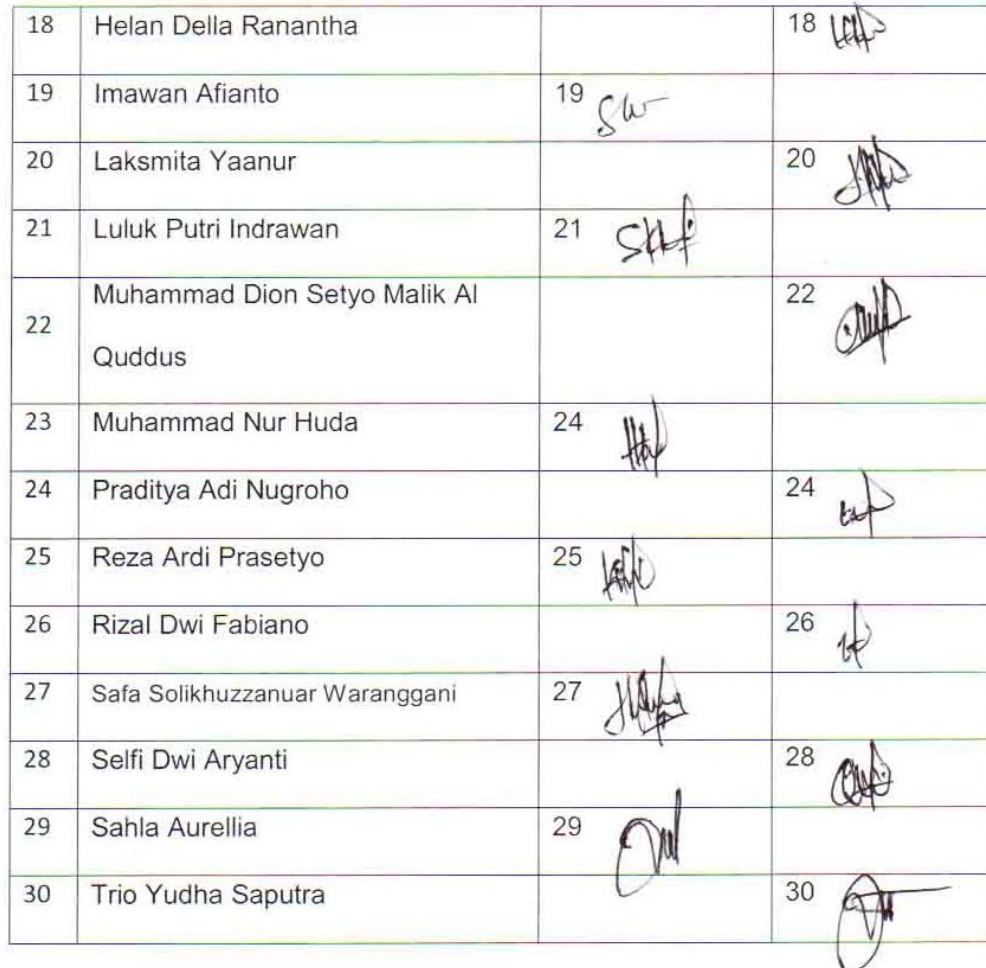 18 Helan Della Ranantha 18
19 Imawan Afianto 19
20 Laksmita Yaanur 20
21 Luluk Putri Indrawan 21
22 Muhammad Dion Setyo Malik Al 22
Quddus
23 Muhammad Nur Huda 24
24 Praditya Adi Nugroho 24
25 Reza Ardi Prasetyo 25
26 Rizal Dwi Fabiano 26
27 Safa Solikhuzzanuar Waranggani 27
28 Selfi Dwi Aryanti 28
29 Sahla Aurellia 29
30 Trio Yudha Saputra 30